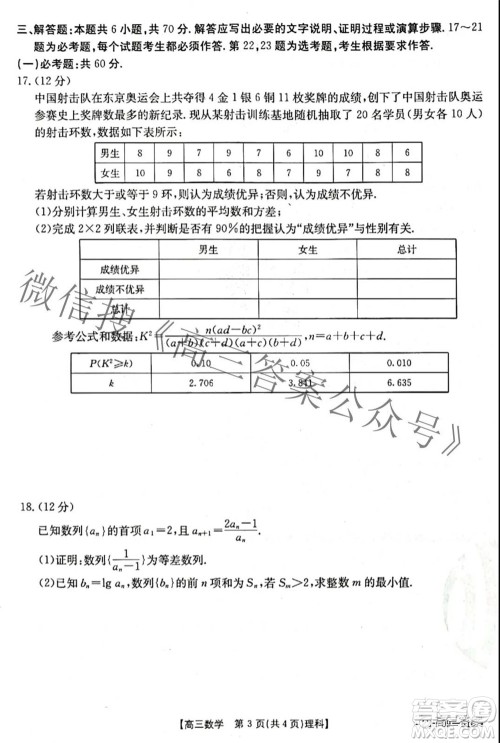 三、解答题:本题共 6 小题,共 70 分. 解答应写出必要的文字说明、证明过程或演算步骤. 17～21
题为必考题,每个试题考生都必须作答. 第 22,23 题为选考题,考生根据要求作答.
(一)必考题:共 60 分.
17.(12 分)
中国射击队在东京奥运会上共夺得 4 金 1 银 6 铜 11 枚奖牌的成绩,创下了中国射击队奥运
参赛史上奖牌数最多的新纪录. 现从某射击训练基地随机抽取了 20 名学员(男女各 10 人)
的射击环数,数据如下表所示:
男生 8 9 7 9 7 6 10 10 8 6
女生 10 9 8 6 8 7 9 7 8 8
若射击环数大于或等于 9 环,则认为成绩优异;否则,认为成绩不优异.
(1)分别计算男生、女生射击环数的平均数和方差;
(2)完成 2×2 列联表,并判断是否有 90%的把握认为“成绩优异”与性别有关.
男生 女生 总计
成绩优异
成绩不优异
总计
参考公式和数据:K²=n(ad−bc)²/(a+b)(c+d)(a+c)(b+d),n=a+b+c+d.
P(K²≥k) 0.10 0.05 0.010
k 2.706 3.841 6.635
18.(12 分)
已知数列{aₙ}的首项 a₁=2,且 aₙ₊₁=(2aₙ−1)/aₙ.
(1)证明:数列{1/(aₙ−1)}为等差数列.
(2)已知 bₙ=lg aₙ,数列{bₙ}的前 n 项和为 Sₙ,若 Sₘ>2,求整数 m 的最小值.
微信搜《高三答案公众号》
【高三数学 第 3 页(共 4 页)理科】